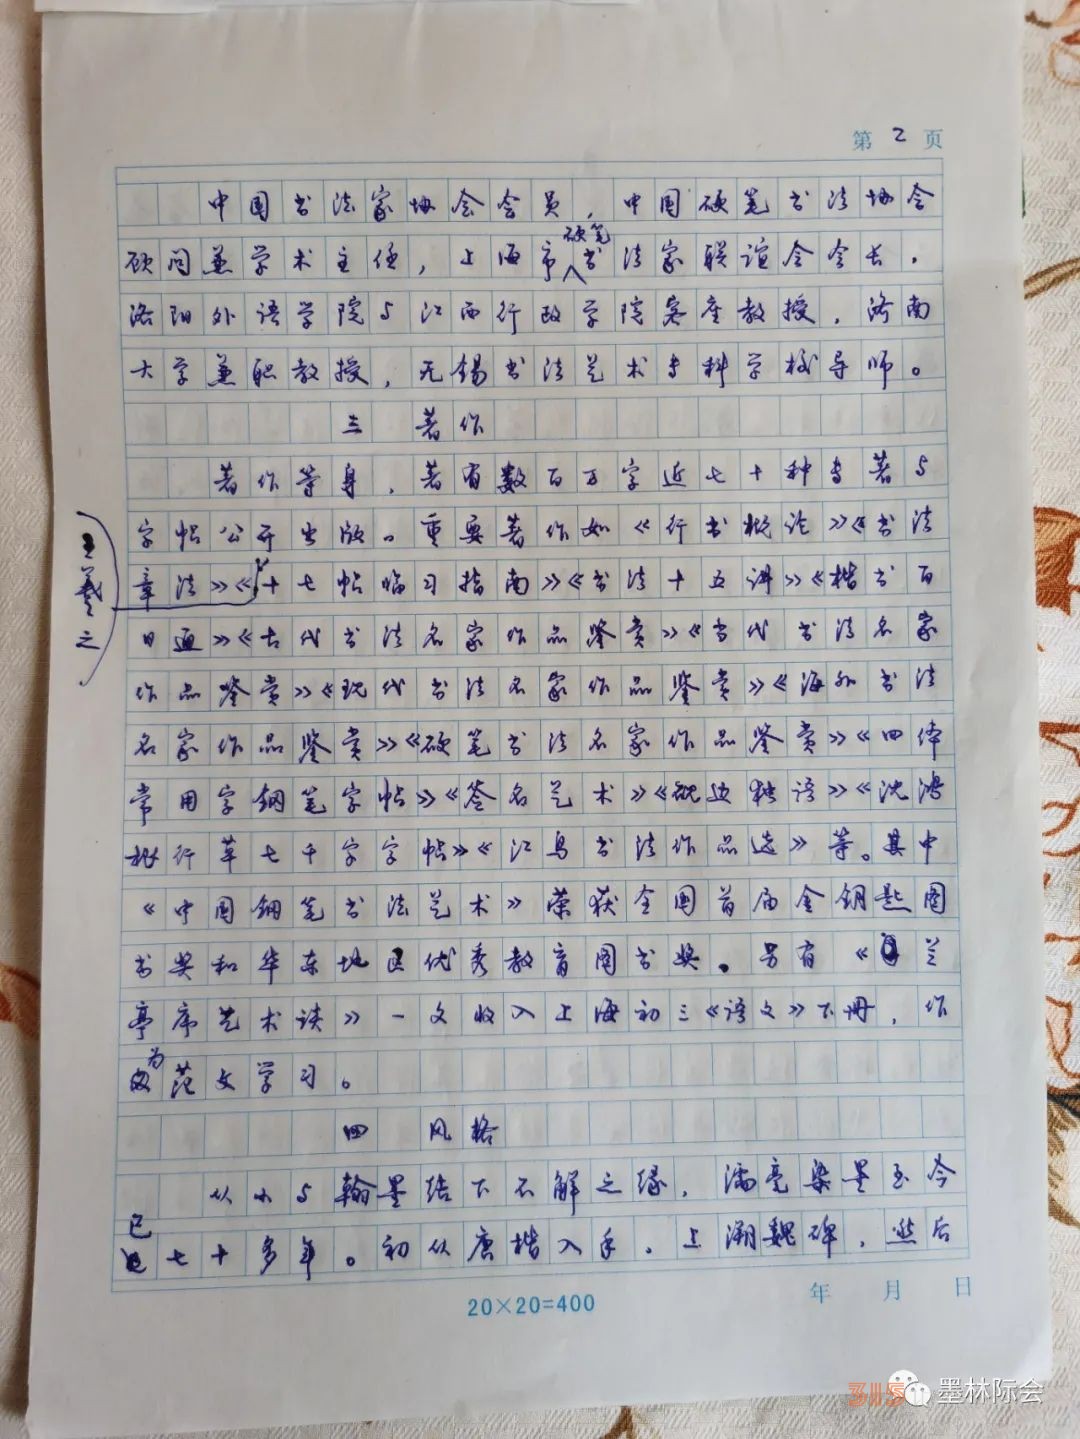 第2页
中国书法家协会会员，中国硬笔书法协会
顾问兼学术主任，上海市硬笔书法家联谊会会长。
洛阳外语学院与江西行政学院客座教授，济南
大学兼职教授，无锡书法艺术专科学校导师。
三 著作
著作等身，著有数百万字近七十种专著与
字帖公开出版。重要著作如《行书概论》《书法
章法》《王羲之十七帖临习指南》《书法十五讲》《楷书百
日通》《古代书法名家作品鉴赏》《当代书法名家
作品鉴赏》《现代书法名家作品鉴赏》《海外书法
名家作品鉴赏》《硬笔书法名家作品鉴赏》《四体
常用字钢笔字帖》《签名艺术》《砚边独语》《沈鸿
根行草七千字字帖》《江鸟书法作品选》等。其中
《中国钢笔书法艺术》荣获全国首届金钥匙图
书奖和华东地区优秀教育图书奖。另有《兰
亭序艺术谈》一文收入上海初三《语文》下册，作
为范文学习。
四 风格
从小与翰墨结下不解之缘，濡毫染墨至今
已七十多年。初从唐楷入手，上溯魏碑，然后
20×20=400
年 月 日
315
墨林际会